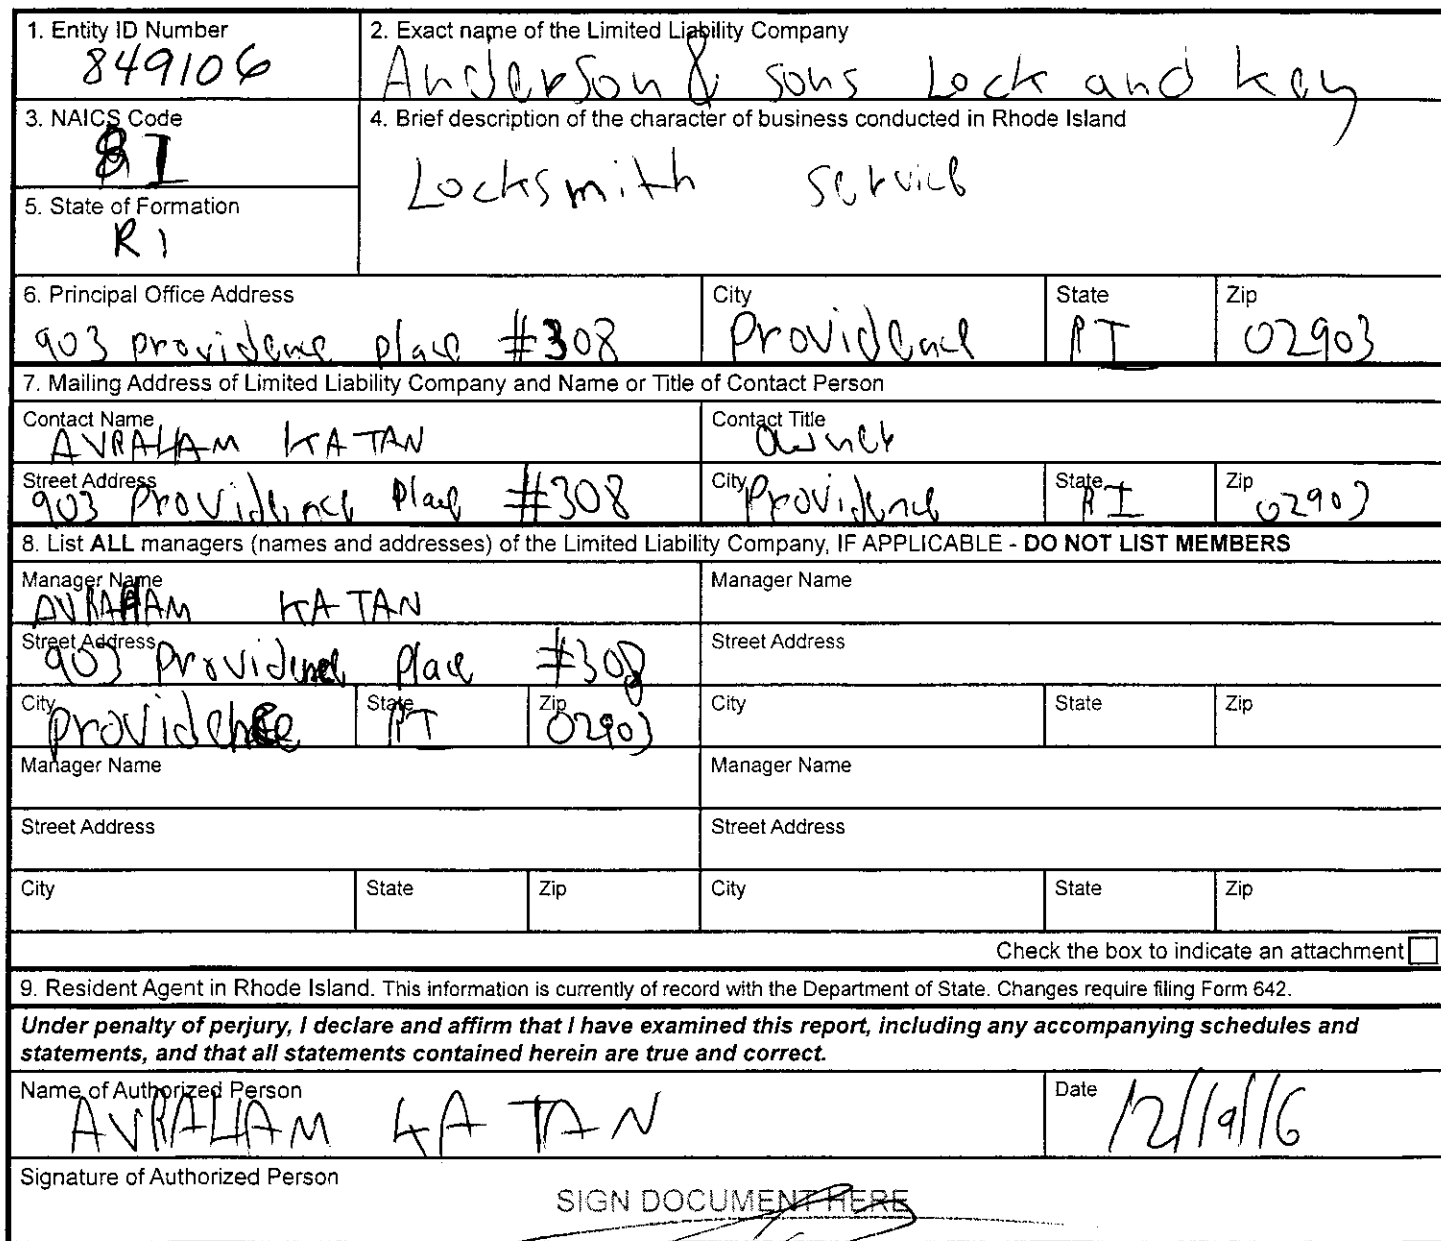 1. Entity ID Number
849106
2. Exact name of the Limited Liability Company
Anderson & sons Lock and key
3. NAICS Code
81
4. Brief description of the character of business conducted in Rhode Island
Locksmith service
5. State of Formation
RI
6. Principal Office Address City State Zip
903 providence place #308 Providence RI 02903
7. Mailing Address of Limited Liability Company and Name or Title of Contact Person
Contact Name Contact Title
AVRAHAM KATAN owner
Street Address City State Zip
903 Providence Place #308 Providence RI 02903
8. List ALL managers (names and addresses) of the Limited Liability Company, IF APPLICABLE - DO NOT LIST MEMBERS
Manager Name Manager Name
AVRAHAM KATAN
Street Address Street Address
903 Providence Place #308
City State Zip City State Zip
providence RI 02903
Manager Name Manager Name
Street Address Street Address
City State Zip City State Zip
Check the box to indicate an attachment
9. Resident Agent in Rhode Island. This information is currently of record with the Department of State. Changes require filing Form 642.
Under penalty of perjury, I declare and affirm that I have examined this report, including any accompanying schedules and
statements, and that all statements contained herein are true and correct.
Name of Authorized Person Date
AVRAHAM KATAN 12/19/16
Signature of Authorized Person
SIGN DOCUMENT HERE